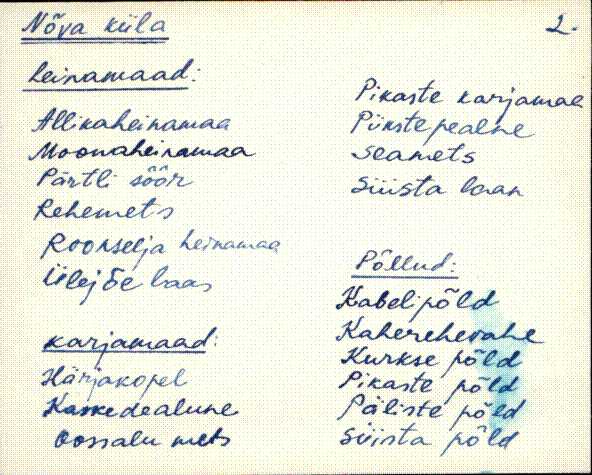 Nõva küla
2.
heinamaad:
Allikaheinamaa
Moonaheinamaa
Pärtli söör
Rehemets
Roonselja heinamaa
Ülejõe laas
karjamaad:
Härjakopel
Kaskedealune
Oossalu mets
Pikaste karjamaa
Piikstepealne
Seamets
Süista laan
Põllud:
Kabelipõld
Kaherehevahe
Kurkse põld
Pikaste põld
Päliste põld
Süista põld